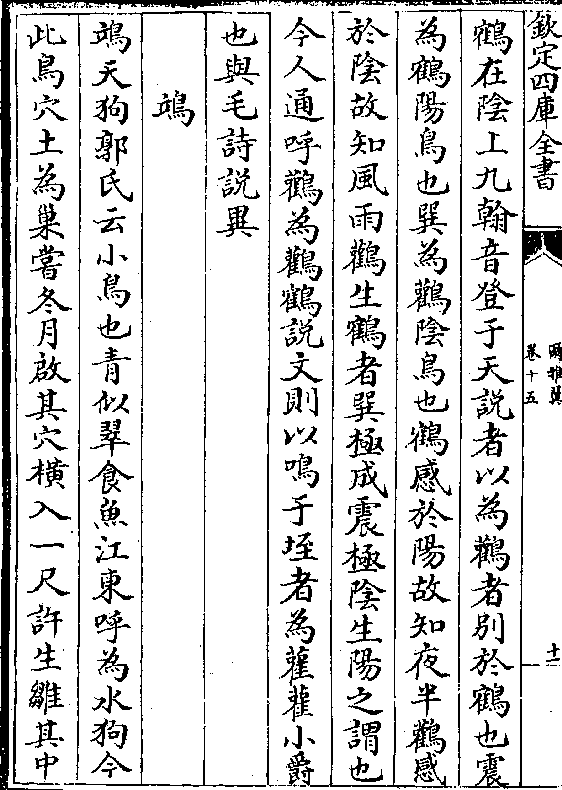 欽定四庫全書
爾雅翼
卷十五
十一
鶴在陰上九翰音登于天説者以為鸛者别於鶴也震
為鶴陽鳥也巽為鸛陰鳥也鶴感於陽故知夜半鸛感
於陰故知風雨鸛生鶴者巽極成震極陰生陽之謂也
今人通呼鸛為鸛鶴説文則以鳴于垤者為雚雚小爵
也與毛詩説異
鴗
鴗天狗郭氏云小鳥也青似翠食魚江東呼為水狗今
此鳥穴土為巢嘗冬月啟其穴横入一尺許生雛其中